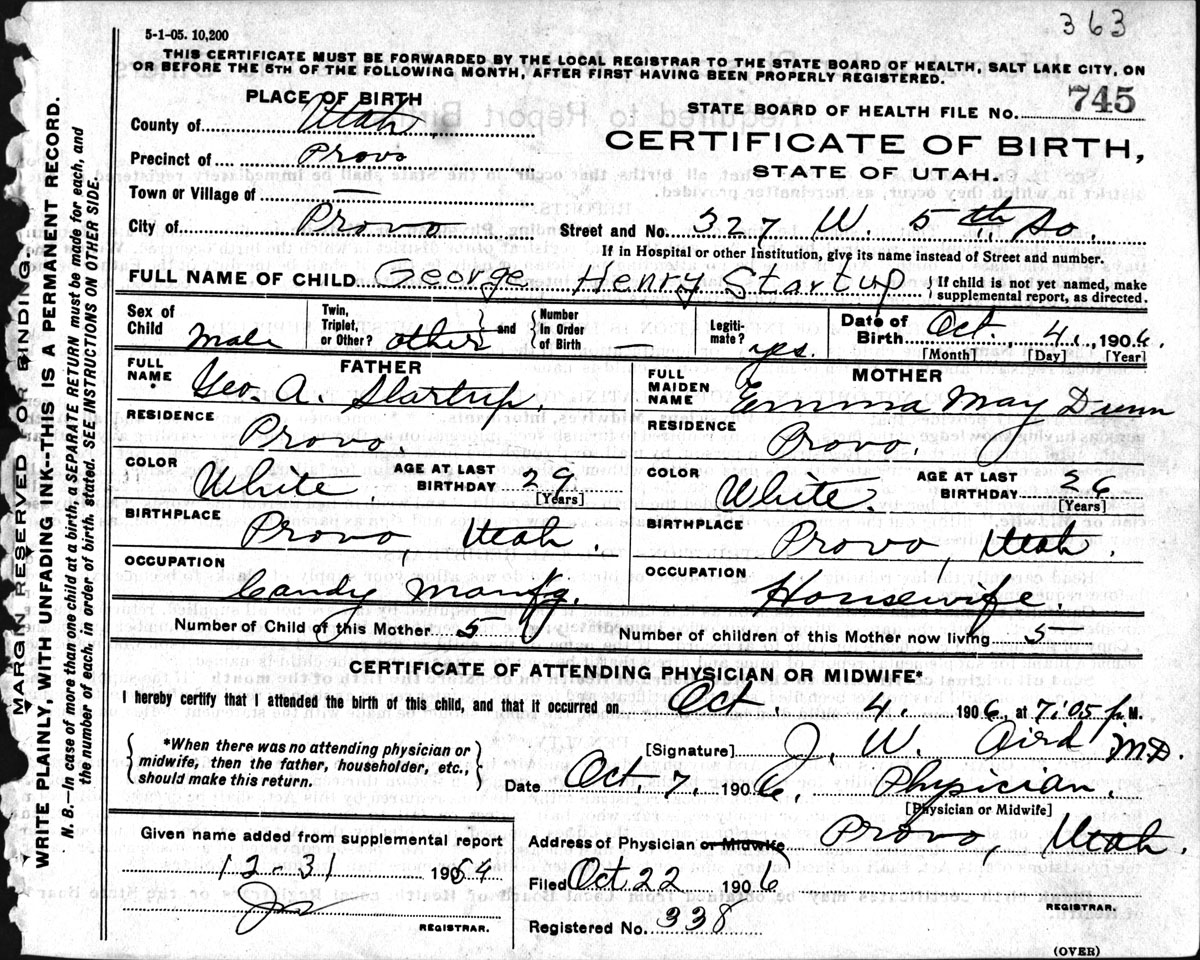 363
5-1-05. 10,200
THIS CERTIFICATE MUST BE FORWARDED BY THE LOCAL REGISTRAR TO THE STATE BOARD OF HEALTH, SALT LAKE CITY, ON
OR BEFORE THE 5TH OF THE FOLLOWING MONTH, AFTER FIRST HAVING BEEN PROPERLY REGISTERED.
PLACE OF BIRTH
STATE BOARD OF HEALTH FILE No. 745
County of Utah
CERTIFICATE OF BIRTH,
Precinct of Provo
STATE OF UTAH.
Town or Village of —
City of Provo Street and No. 327 W. 5th. So.
If in Hospital or other Institution, give its name instead of Street and number.
FULL NAME OF CHILD George Henry Startup { If child is not yet named, make
supplemental report, as directed.
Sex of Child Male Twin, Triplet, or Other? other } and { Number In Order of Birth — Legiti-mate? yes. Date of Birth Oct. 4, 1906.
[Month] [Day] [Year]
FULL NAME FATHER Geo A. Startup
FULL MAIDEN NAME MOTHER Emma May Dunn
RESIDENCE Provo.
RESIDENCE Provo.
COLOR White. AGE AT LAST BIRTHDAY 29 [Years]
COLOR White. AGE AT LAST BIRTHDAY 36 [Years]
BIRTHPLACE Provo, Utah.
BIRTHPLACE Provo, Utah.
OCCUPATION Candy Manfg.
OCCUPATION Housewife.
Number of Child of this Mother 5 Number of children of this Mother now living 5
CERTIFICATE OF ATTENDING PHYSICIAN OR MIDWIFE*
I hereby certify that I attended the birth of this child, and that it occurred on Oct. 4. 1906, at 7:05 p. M.
{ *When there was no attending physician or
midwife, then the father, householder, etc.,
should make this return. }
[Signature] J. W. Aird MD.
Date Oct. 7. 1906. Physician.
[Physician or Midwife]
Address of Physician or Midwife Provo, Utah.
Given name added from supplemental report
12-31 1954
REGISTRAR.
Filed Oct 22 1906
REGISTRAR.
Registered No. 338
(OVER)
MARGIN RESERVED FOR BINDING.
WRITE PLAINLY, WITH UNFADING INK--THIS IS A PERMANENT RECORD.
N. B.—In case of more than one child at a birth, a SEPARATE RETURN must be made for each, and
the number of each, in order of birth, stated. SEE INSTRUCTIONS ON OTHER SIDE.